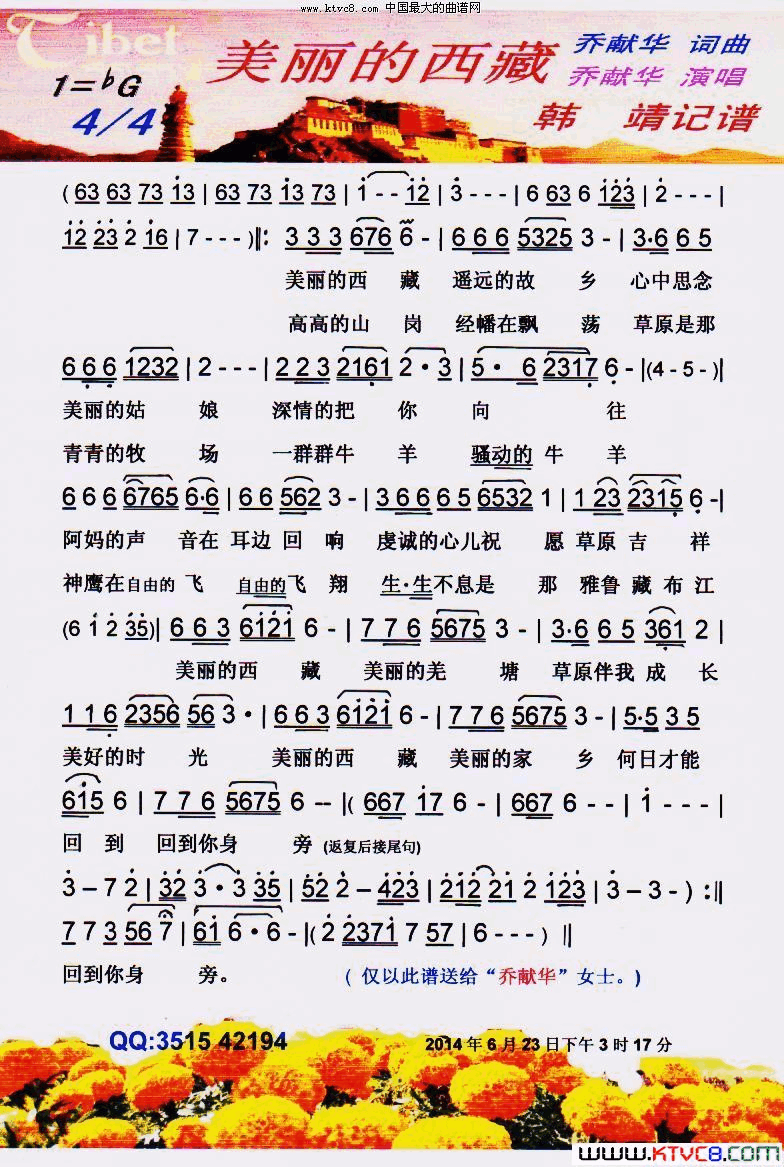 www.ktvc8.com 中国最大的曲谱网
Tibet
美丽的西藏
乔献华 词曲
乔献华 演唱
韩 靖记谱
1=♭G
4/4
( 63 63 73 1̇3 | 63 73 1̇3 73 | 1̇ - - 1̇2̇ | 3̇ - - - | 6 63 6 1̇2̇3̇ | 2̇ - - - |
1̇2̇ 2̇3̇ 2̇ 1̇6 | 7 - - - )‖: 3 3 3 676 6̇ - | 6 6 6 5325 3 - | 3·6 6 5
美丽的西 藏 遥远的故 乡 心中思念
高高的山 岗 经幡在飘 荡 草原是那
6 6 6 1232 | 2 - - - | 2 2 3 2161 2·3 | 5· 6 2317 6 - |(4 - 5 -)|
美丽的姑 娘 深情的把 你 向 往
青青的牧 场 一群群牛 羊 骚动的 牛 羊
6 6 6 6765 6·6 | 6 6 562 3 - | 3 6 6 6 5 6532 1 | 1 23 2315 6 - |
阿妈的声 音在 耳边 回 响 虔诚的心儿祝 愿 草原 吉 祥
神鹰在自由的 飞 自由的飞 翔 生·生不息是 那 雅鲁 藏 布 江
(6 1̇ 2̇ 3̇5̇)| 6 6 3 61̇2̇1̇ 6 - | 7 7 6 5675 3 - | 3·6 6 5 361 2 |
美丽的西 藏 美丽的羌 塘 草原伴我 成 长
1 1 6 2356 56 3· | 6 6 3 61̇2̇1̇ 6 - | 7 7 6 5675 3 - | 5·5 3 5
美好的时 光 美丽的西 藏 美丽的家 乡 何日才能
61̇5 6 | 7 7 6 5675 6 -- |( 667 1̇7 6 - | 667 6 - - | 1̇ - - - |
回 到 回到你身 旁 (返复后接尾句)
3̇ – 7 2̇ | 3̇2̇ 3̇·3̇ 3̇5̇ | 5̇2̇ 2̇ – 4̇2̇3̇ | 2̇1̇2̇ 2̇1̇ 2̇ 1̇2̇3̇ | 3̇ – 3̇ - ) :‖
7 7 3 56 7 | 61̇ 6·6 - |( 2̇ 2̇3̇7̇1̇ 7 57 | 6 - - - ) ‖
回到你身 旁。 ( 仅以此谱送给“乔献华”女士。)
QQ:3515 42194
2014 年 6 月 23 日下午 3 时 17 分
www.KTVC8.com